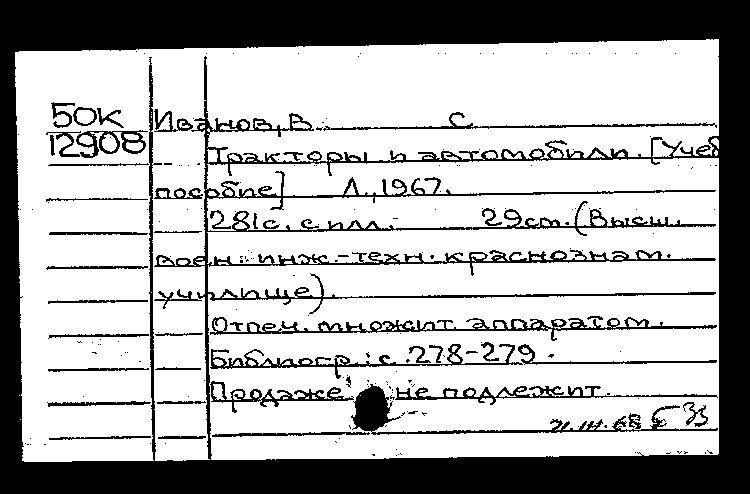 50К Иванов, В. С
12908 Тракторы и автомобили. [Учеб
пособие] Л., 1967.
281с. с илл. 29cm. (Высш.
воен. инж.-техн. краснознам.
училище).
Отпеч. множит. аппаратом.
Библиогр.: с. 278-279.
Продаже не подлежит.
21.III.68 Б 33